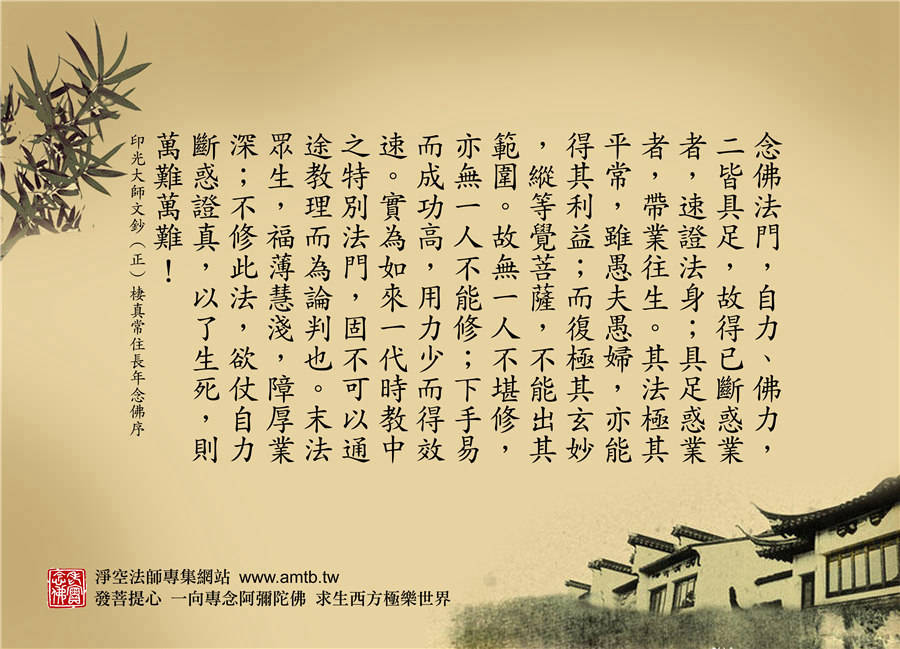 念佛法門，自力、佛力，
二皆具足，故得已斷惑業
者，速證法身；具足惑業
者，帶業往生。其法極其
平常，雖愚夫愚婦，亦能
得其利益；而復極其玄妙
，縱等覺菩薩，不能出其
範圍。故無一人不堪修，
亦無一人不能修；下手易
而成功高，用力少而得效
速。實為如來一代時教中
之特別法門，固不可以通
途教理而為論判也。末法
眾生，福薄慧淺，障厚業
深；不修此法，欲仗自力
斷惑證真，以了生死，則
萬難萬難！
印光大師文鈔（正）棲真常住長年念佛序
老實念佛
淨空法師專集網站 www.amtb.tw
發菩提心 一向專念阿彌陀佛 求生西方極樂世界